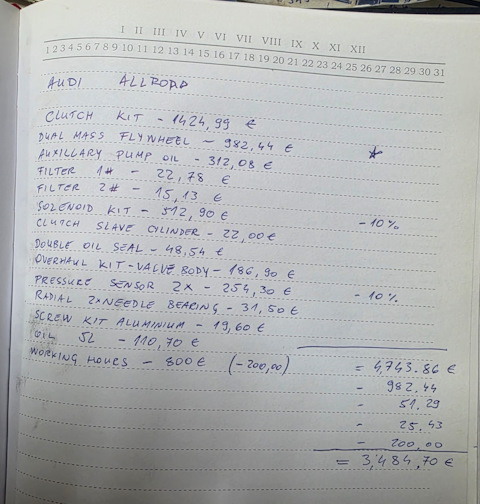 I II III IV V VI VII VIII IX X XI XII
1 2 3 4 5 6 7 8 9 10 11 12 13 14 15 16 17 18 19 20 21 22 23 24 25 26 27 28 29 30 31
AUDI ALLROAD
CLUTCH KIT - 1424,99 €
DUAL MASS FLYWHEEL - 982,44 € *
AUXILLARY PUMP OIL - 312,08 €
FILTER 1# - 22,78 €
FILTER 2# - 15,13 €
SOLENOID KIT - 512,90 € - 10%
CLUTCH SLAVE CILINDER - 22,00 €
DOUBLE OIL SEAL - 48,54 €
OVERHAUL KIT-VALVE BODY - 186,90 €
PRESSURE SENSOR 2X - 254,30 € - 10%
RADIAL 2XNEEDLE BEARING - 31,50 €
SCREW KIT ALUMINIUM - 19,60 €
OIL 5L - 110,70 €
WORKING HOURS - 800 € (-200,00) = 4,743.86 €
- 982.44
- 51.29
- 25.43
- 200.00
= 3,484,70 €